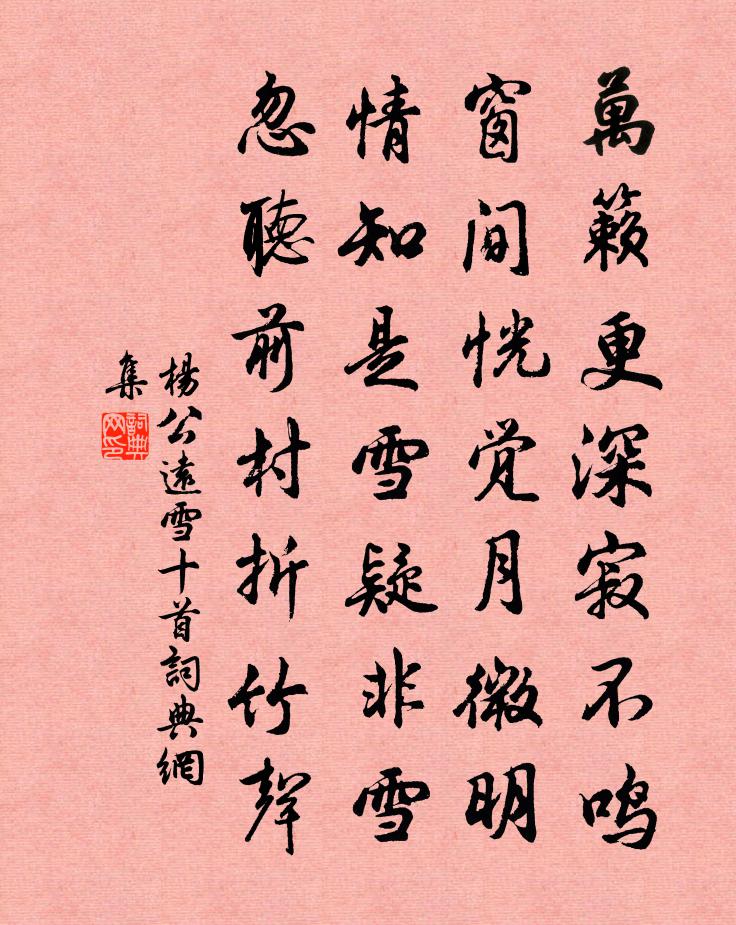 萬籟更深寂不鸣
窗间恍觉月微明
情知是雪疑非雪
忽聽前村折竹聲
楊公遠雪十首詞典網
集
詞典网印